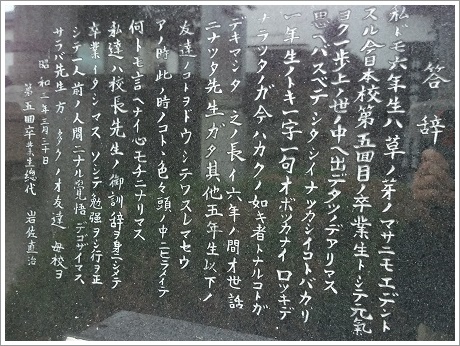 答辞
私ドモ六年生ハ草ノ芽ノマサニモエデント
スル今日本校第五四回ノ卒業生トシテ元氣
ヨク一歩上ノ世ノ中ヘ出デタツノデアリマス
四ヘバスベテシタシイナツカシイコトバカリ
一年生ノトキ一字一句オボツカナイロツキデ
ナラツタノガ今ハカクノ如キ者トナルコトガ
デキマシタ之ノ長イ六年ノ間オ世話
ニナツタ先生ガタ其他五年生以下ノ
友達ノコトヲドウシテワスレマセウ
アノ時此ノ時ノコトノ色々頭ノ中ニヒライテ
何トモ言ヘナイ心モチニナリマス
私達ハ校長先生ノ御訓辞ヲ身ニシテ
卒業イタシマスソシテ勉強ヲシ行ヲ正
シテ一人前ノ人間ニナル覚悟デゴザイマス
サラバ先生方 オ友達ノ母校ヨ
昭和二年三月二十日
第五四卒業生總代 岩佐直治